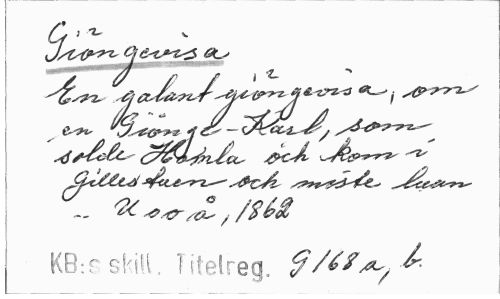 Giöngevisa
En galant giöngevisa, om
en Giönge-Karl, som
solde Homla och kom i
Gillestuen och miste luan
.. U o o å, 1862
KB:s skill. Titelreg. G 168 a, b.